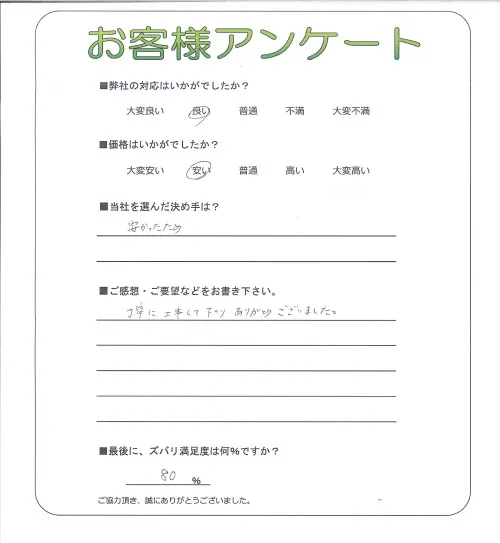 お客様アンケート
■弊社の対応はいかがでしたか?
大変良い 良い 普通 不満 大変不満
■価格はいかがでしたか?
大変安い 安い 普通 高い 大変高い
■当社を選んだ決め手は?
安かったため
■ご感想・ご要望などをお書き下さい。
丁寧に工事して下さりありがとうございました。
■最後に、ズバリ満足度は何%ですか?
80 %
ご協力頂き、誠にありがとうございました。